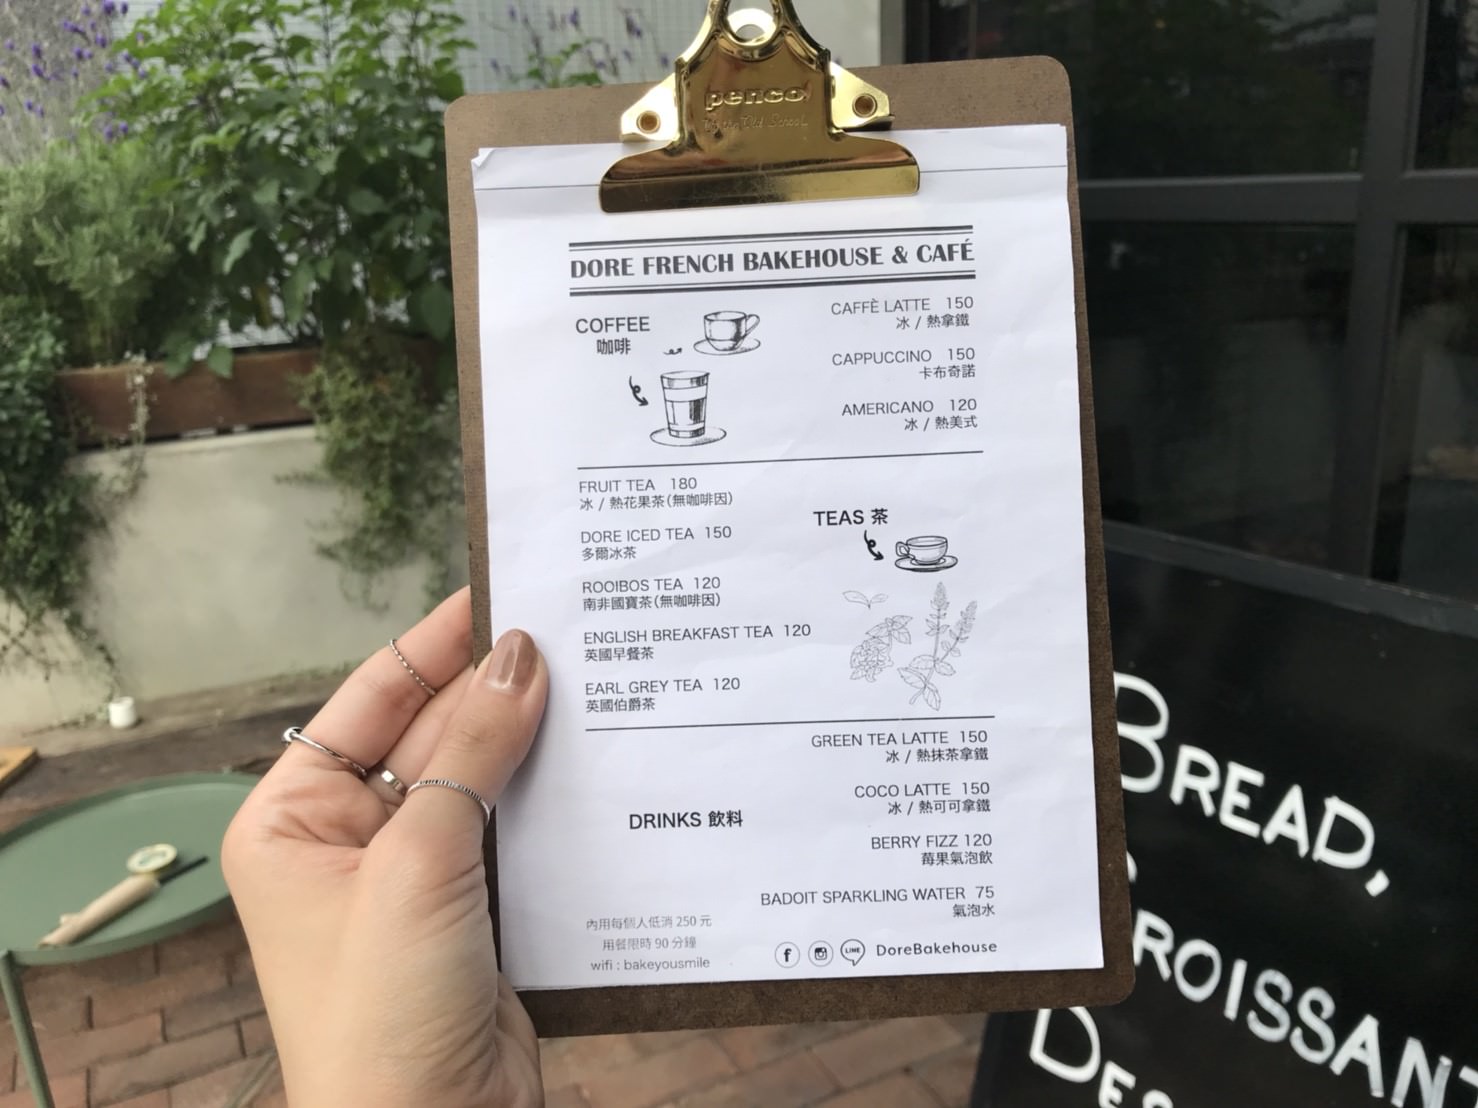 penco
by the Old School
DORE FRENCH BAKEHOUSE & CAFÉ
COFFEE
咖啡
CAFFÈ LATTE 150
冰 / 熱拿鐵
CAPPUCCINO 150
卡布奇諾
AMERICANO 120
冰 / 熱美式
FRUIT TEA 180
冰 / 熱花果茶(無咖啡因)
DORE ICED TEA 150
多爾冰茶
ROOIBOS TEA 120
南非國寶茶(無咖啡因)
ENGLISH BREAKFAST TEA 120
英國早餐茶
EARL GREY TEA 120
英國伯爵茶
TEAS 茶
GREEN TEA LATTE 150
冰 / 熱抹茶拿鐵
COCO LATTE 150
冰 / 熱可可拿鐵
DRINKS 飲料
BERRY FIZZ 120
莓果氣泡飲
BADOIT SPARKLING WATER 75
氣泡水
內用每個人低消 250 元
用餐限時 90 分鐘
wifi : bakeyousmile
f
LINE
DoreBakehouse
BREAD,
ROISSANT
DES